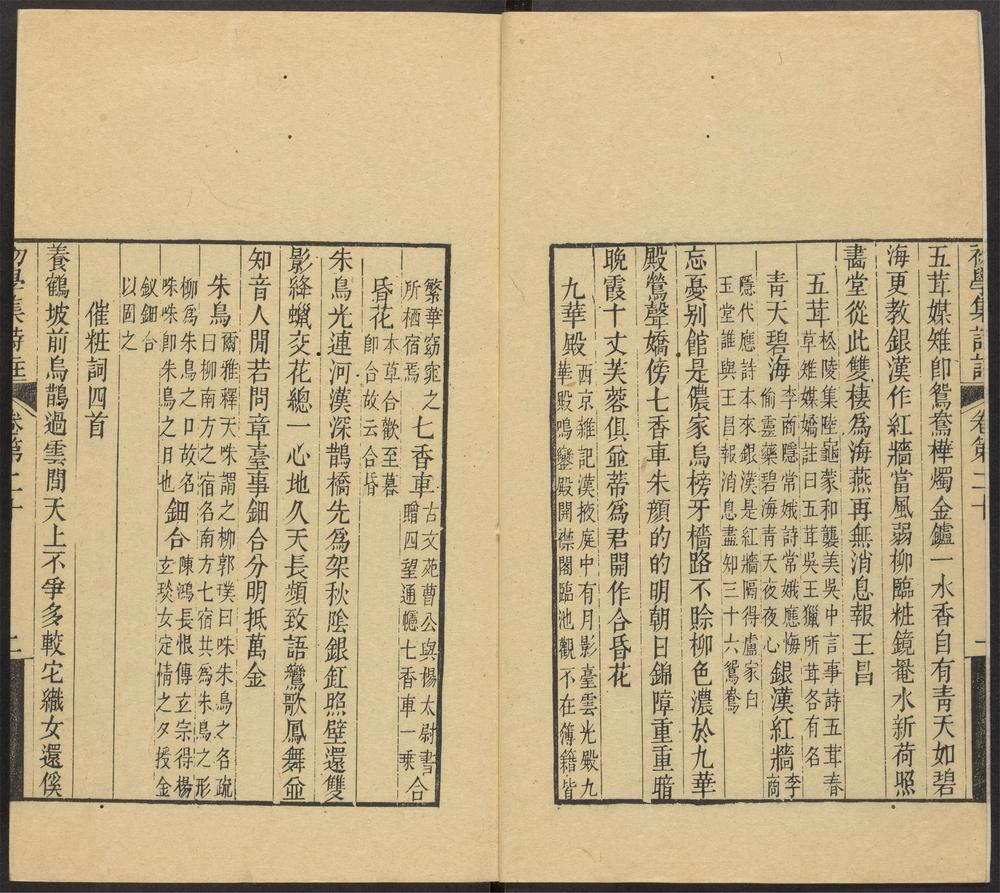 初學集詩註 卷第二十 一
五茸媒雉卽鴛鴦樺燭金鑪一水香自有青天如碧
海更教銀漢作紅牆當風弱柳臨粧鏡罨水新荷照
畵堂從此雙棲爲海燕再無消息報王昌
五茸松陵集陸龜蒙和襲美吳中言事詩五茸春
草雉媒嬌註曰五茸吳王獵所茸各有名
青天碧海李商隱常娥詩常娥應悔
偷靈藥碧海青天夜夜心銀漢紅牆李商
隱代應詩本來銀漢是紅牆隔得盧家白
玉堂誰與王昌報消息盡知三十六鴛鴦
忘憂别館是儂家烏榜牙檣路不賖柳色濃於九華
殿鶯聲嬌傍七香車朱顔的的明朝日錦障重重暗
晚霞十丈芙蓉俱並蒂爲君開作合昏花
九華殿西京雜記漢掖庭中有月影臺雲光殿九
華殿鳴鑾殿開襟閣臨池觀不在簿籍皆
繁華窈窕之
所栖宿焉七香車古文苑曹公與楊太尉書
贈四望通幰七香車一乗合
昏花本草合歡至暮
卽合故云合昏
朱鳥光連河漢深鵲橋先爲架秋陰銀釭照壁還雙
影絳蠟交花總一心地久天長頻致語鸞歌鳳舞並
知音人閒若問章臺事鈿合分明抵萬金
朱鳥爾雅釋天咮謂之柳郭璞曰咮朱鳥之名疏
曰柳南方之宿名南方七宿共爲朱鳥之形
柳爲朱鳥之口故名
咮咮卽朱鳥之口也鈿合陳鴻長恨傳玄宗得楊
玄琰女定情之夕授金
釵鈿合
以固之
催粧詞四首
養鶴坡前烏鵲過雲間天上不爭多較它織女還傒
初學集詩註 卷第二十 二